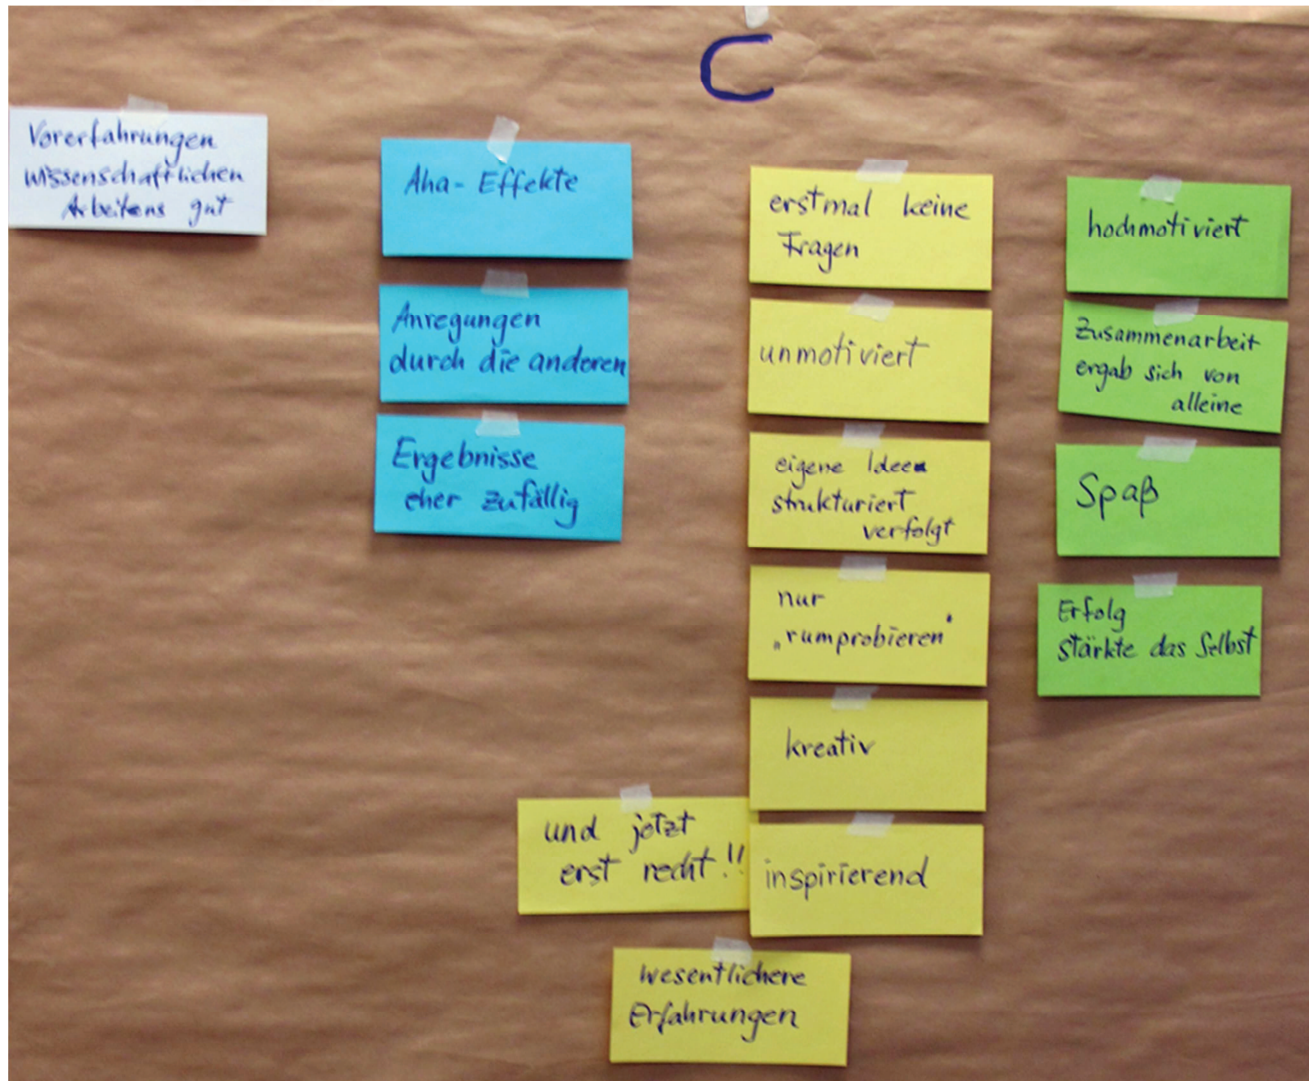 C
Vorerfahrungen
wissenschaftlichen
Arbeitens gut
Aha-Effekte
Anregungen
durch die anderen
Ergebnisse
eher zufällig
erstmal keine
Fragen
unmotiviert
eigene Ideen
strukturiert
verfolgt
nur
„rumprobieren"
kreativ
und jetzt
erst recht!!
inspirierend
wesentlichere
Erfahrungen
hochmotiviert
Zusammenarbeit
ergab sich von
alleine
Spaß
Erfolg
stärkte das Selbst